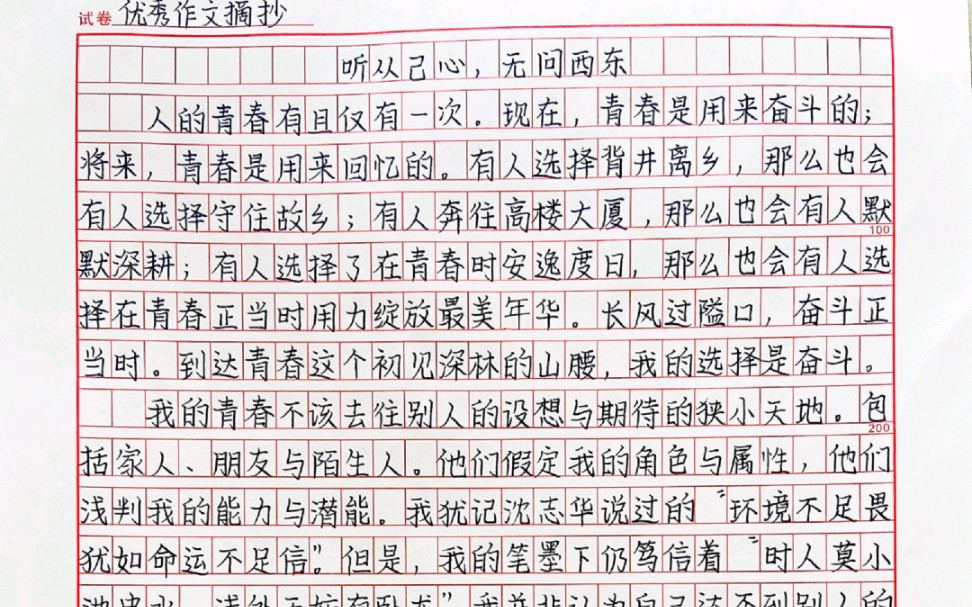 试卷 优秀作文摘抄
听从己心，无问西东
人的青春有且仅有一次。现在，青春是用来奋斗的；
将来，青春是用来回忆的。有人选择背井离乡，那么也会
有人选择守住故乡；有人奔往高楼大厦，那么也会有人默
100
默深耕；有人选择了在青春时安逸度日，那么也会有人选
择在青春正当时用力绽放最美年华。长风过隘口，奋斗正
当时。到达青春这个初见深林的山腰，我的选择是奋斗。
我的青春不该去往别人的设想与期待的狭小天地。包
200
括家人、朋友与陌生人。他们假定我的角色与属性，他们
浅判我的能力与潜能。我犹记沈志华说过的“环境不足畏
犹如命运不足信”。但是，我的笔墨下仍笃信着“时人莫小